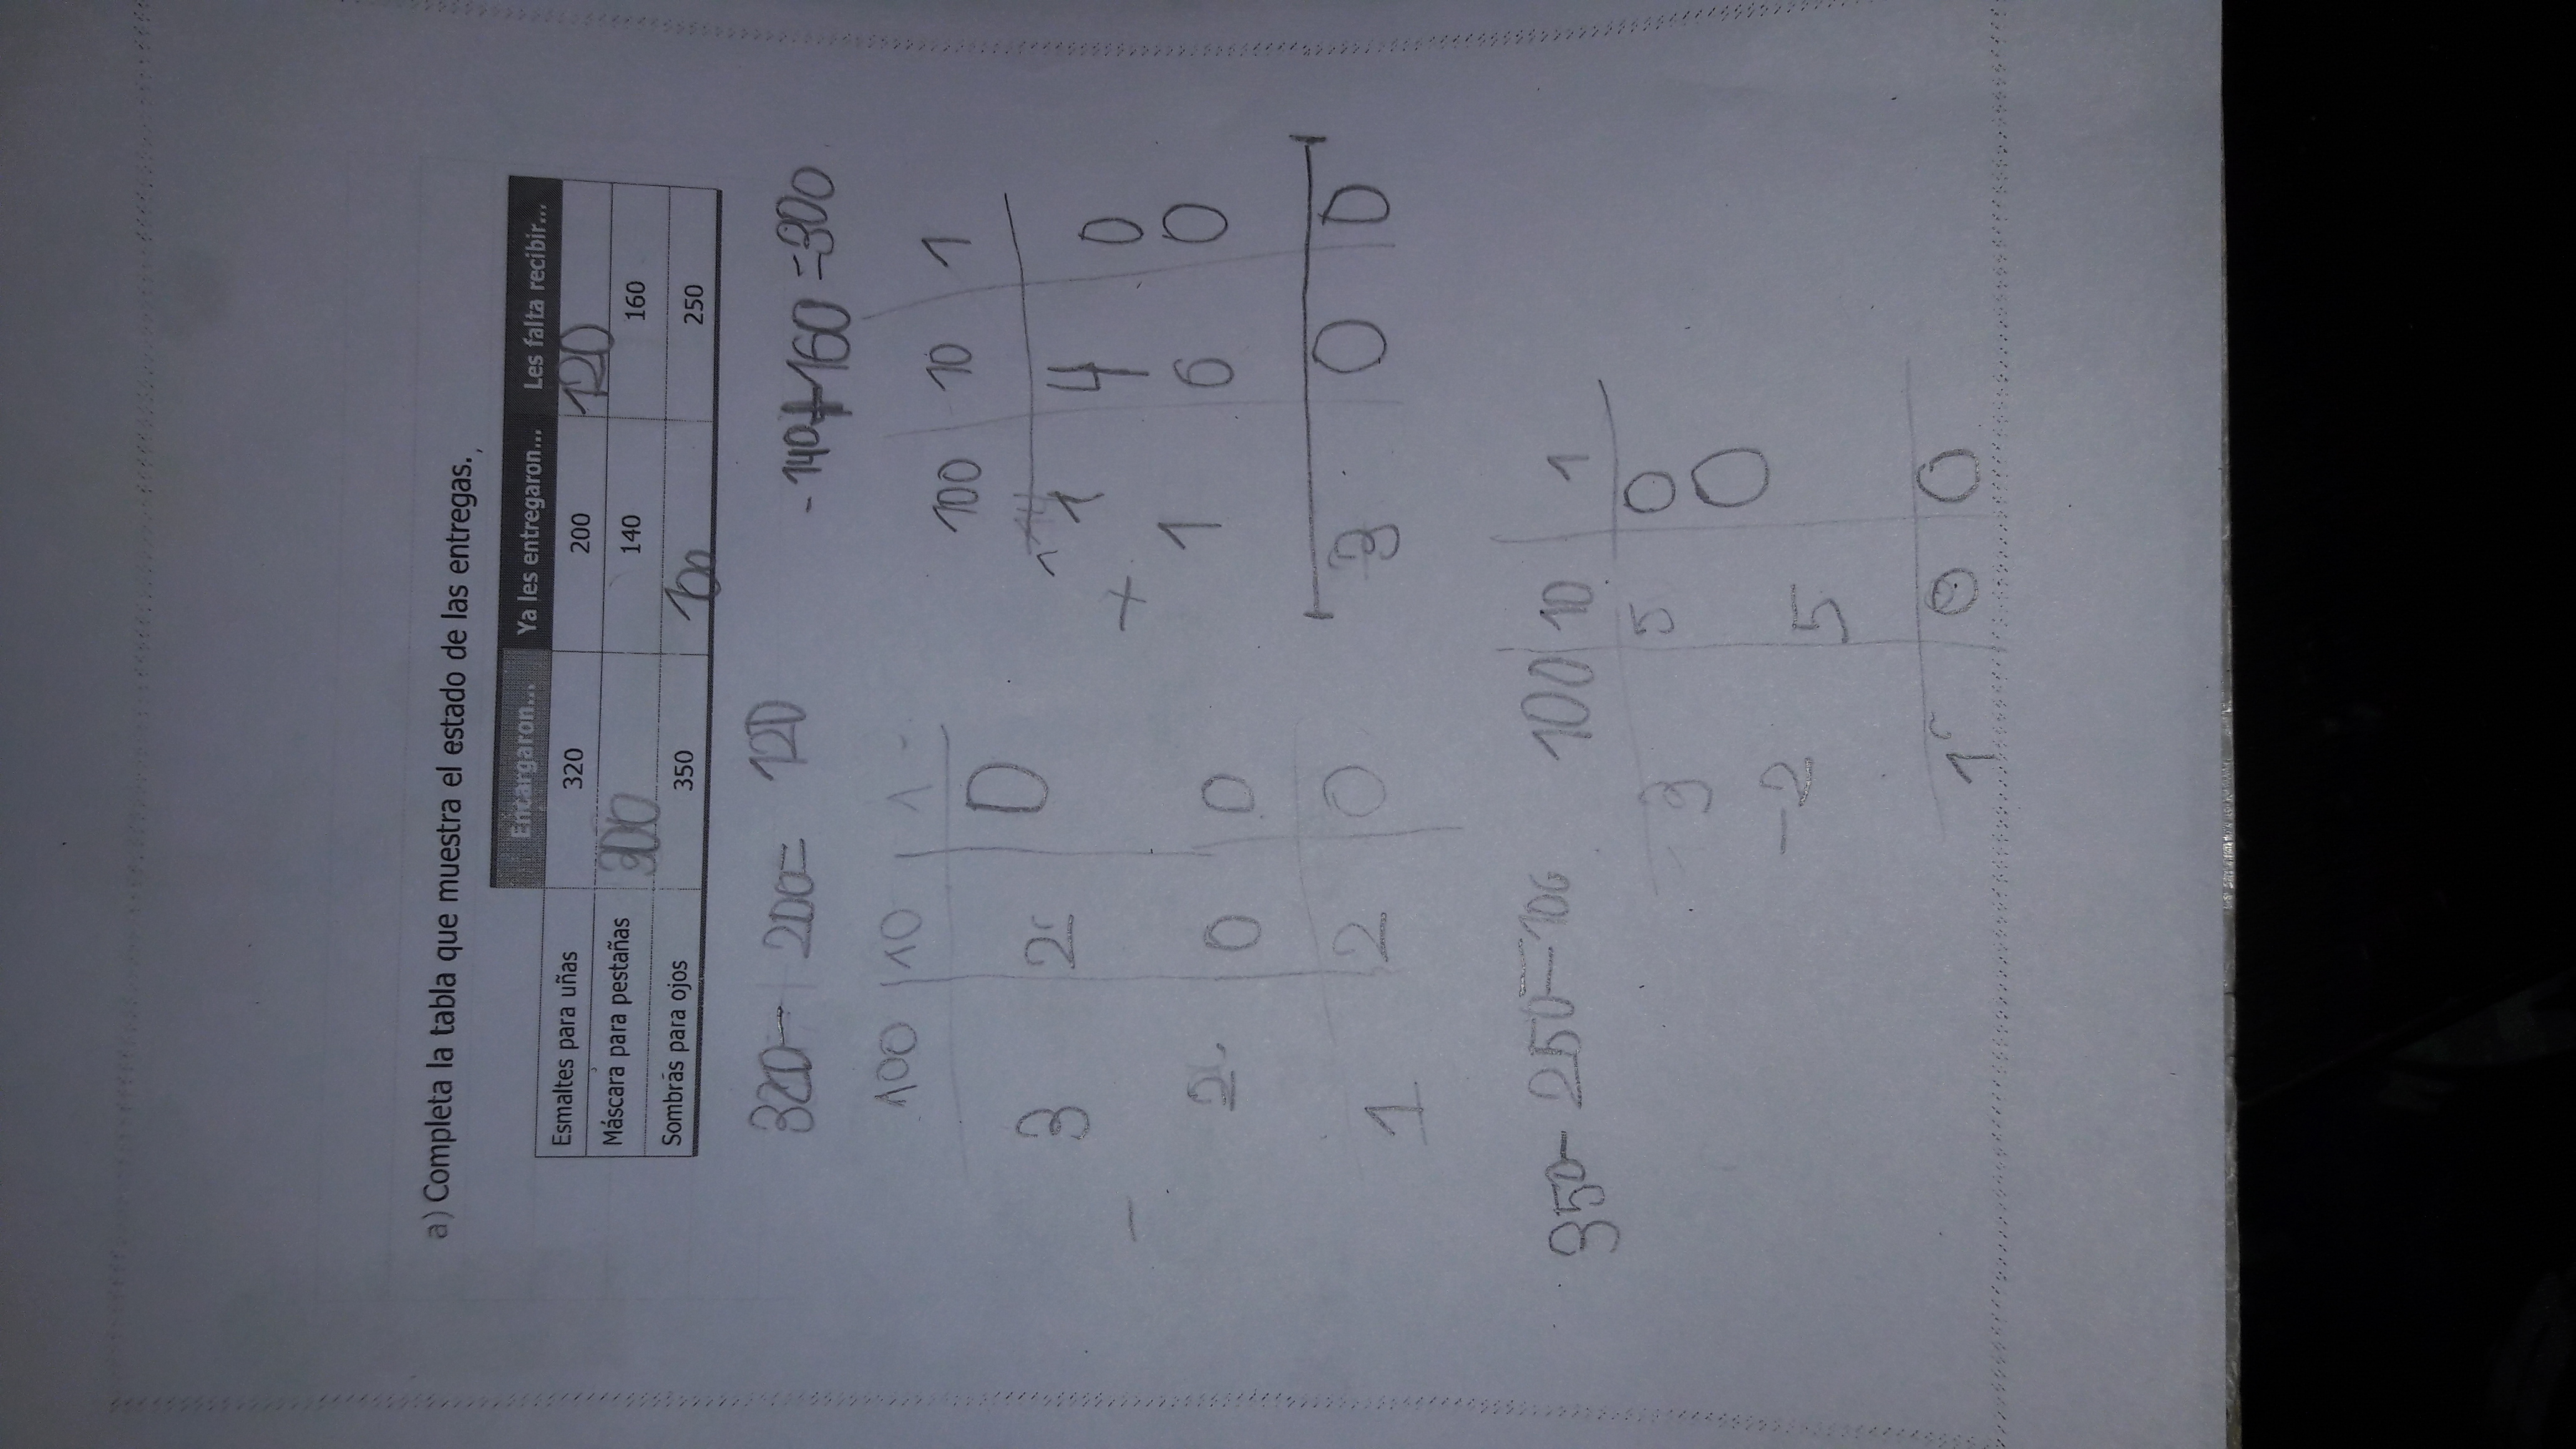 a) Completa la tabla que muestra el estado de las entregas.
Encargaron... Ya les entregaron... Les falta recibir...
Esmaltes para uñas 320 200 120
Máscara para pestañas 300 140 160
Sombras para ojos 350 100 250
320 - 200 = 120
- 140 + 160 = 300
100 10 1
3 2 0
-
2 0 0
1 2 0
100 10 1
1
1 4 0
+
1 6 0
3 0 0
350 - 250 = 100
100 10 1
3 5 0
- 2 5 0
1 0 0